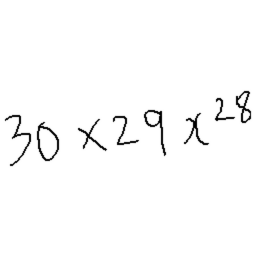 30 × 29 x^{28}